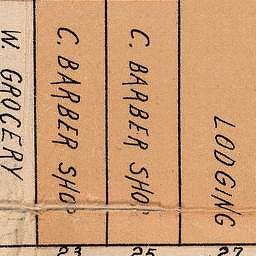 W. GROCERY
C. BARBER SHOP
C. BARBER SHOP
LODGING
23
25
27